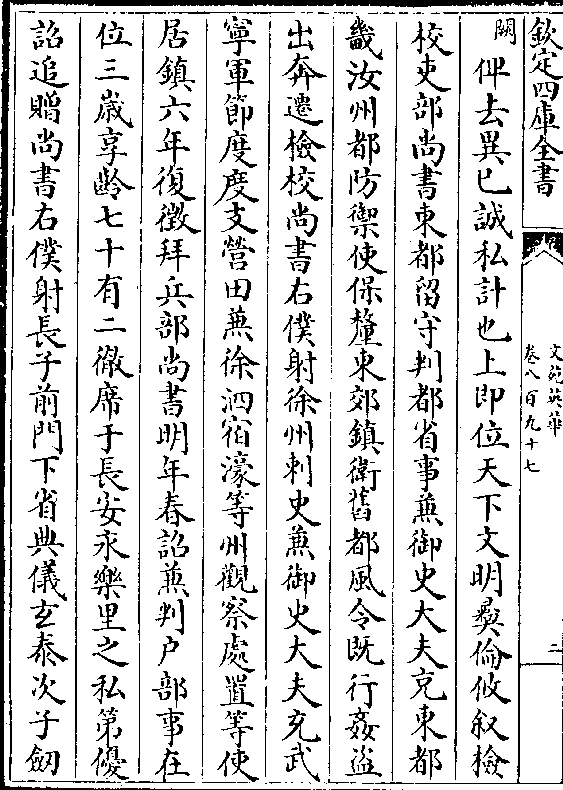 欽定四庫全書
文苑英華
卷八百九十七
二
闕
俾去異已誠私計也上即位天下文明彛倫攸叙檢
校吏部尚書東都留守判都省事兼御史大夫充東都
畿汝州都防禦使保釐東郊鎮衛舊都風令既行姦盜
出奔遷檢校尚書右僕射徐州刺史兼御史大夫充武
寧軍節度度支營田兼徐泗宿濠等州觀察處置等使
居鎮六年復徵拜兵部尚書明年春詔兼判户部事在
位三歳享齡七十有二徹席于長安永樂里之私第優
詔追贈尚書右僕射長子前門下省典儀玄泰次子劒